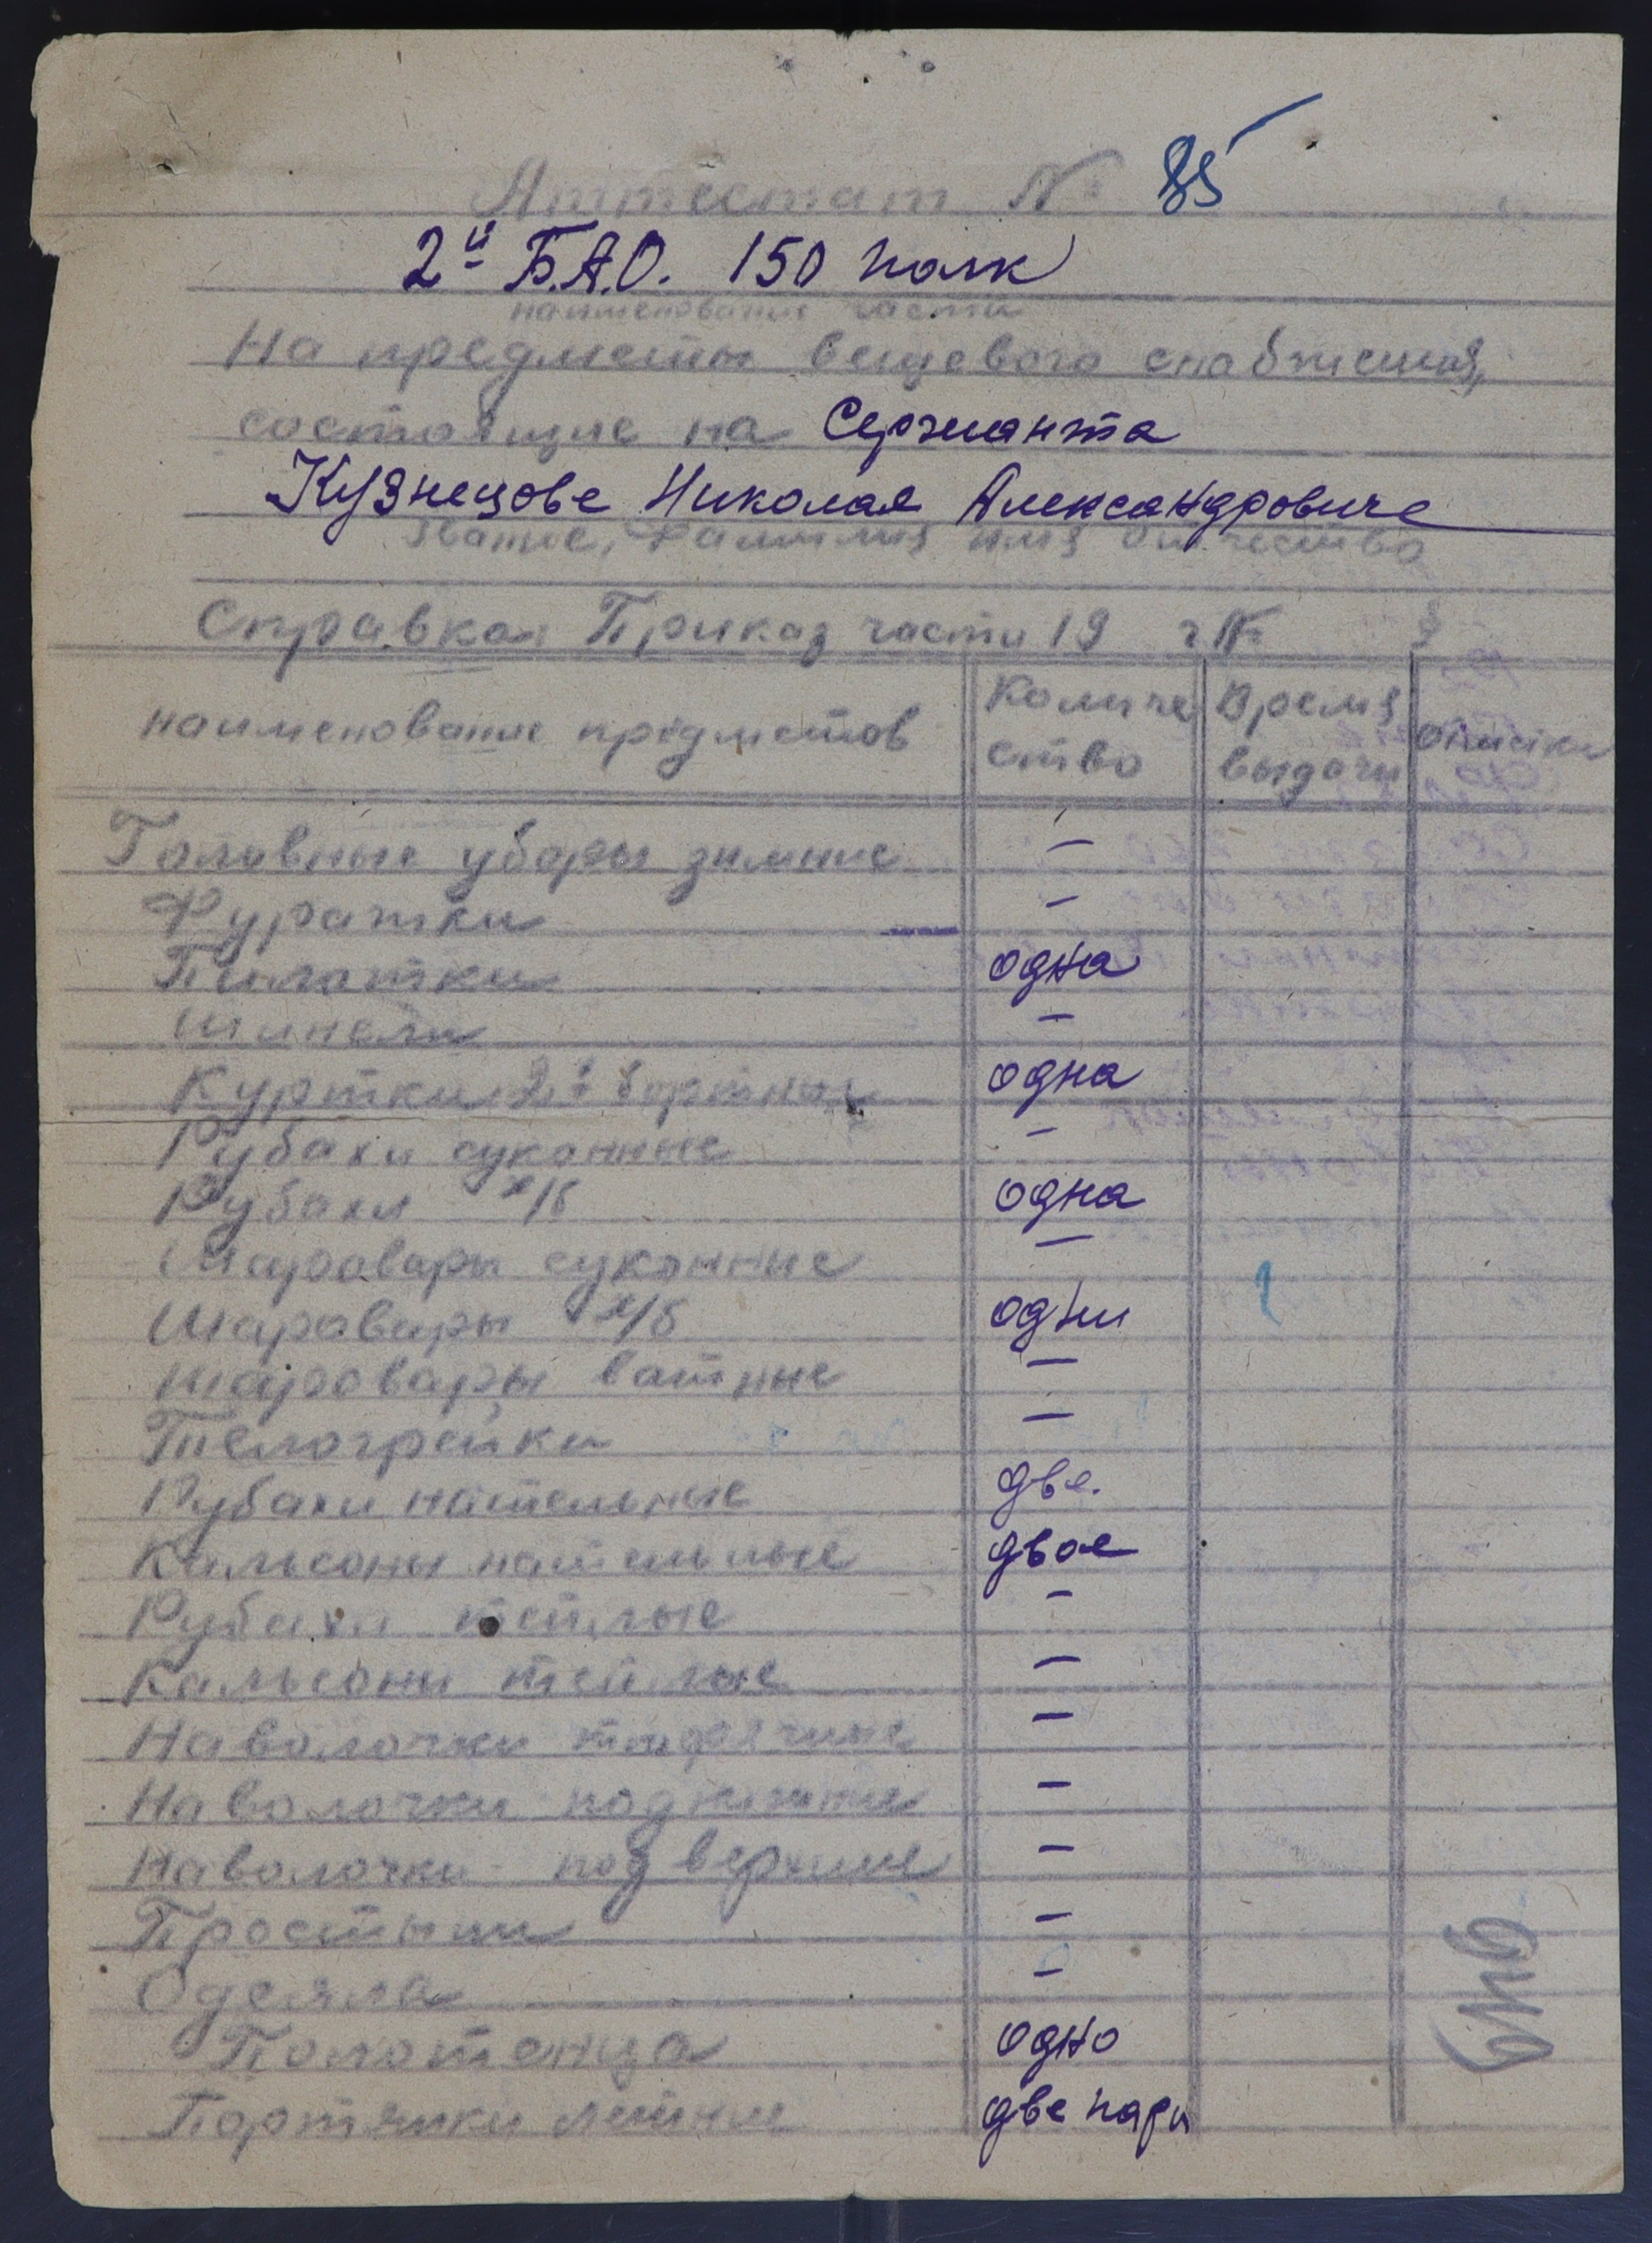 Аттестат № 85
2й Б.А.О. 150 полк
наименование части
На предметы вещевого снабжения,
состоящие на Сержанта
Кузнецове Николая Александровиче
Звание, Фамилия имя Отчество
Справка: Приказ части 19 г № §
наименование предметов Количе ство Время выдачи
Головные уборы зимние —
Фуражки —
Пилотки одна
Шинели —
Куртки 2х бортные одна
Рубахи суконные —
Рубахи х/б одна
Шаровары суконные —
Шаровары х/б одни
Шаровары ватные —
Телогрейки —
Рубахи нательные две.
Кальсоны нательные двое
Рубахи теплые —
Кальсоны теплые —
Наволочки тюфячные —
Наволочки под нижние —
Наволочки под верхние —
Простыни —
Одеяла —
Полотенца одно
Портянки летние две пары